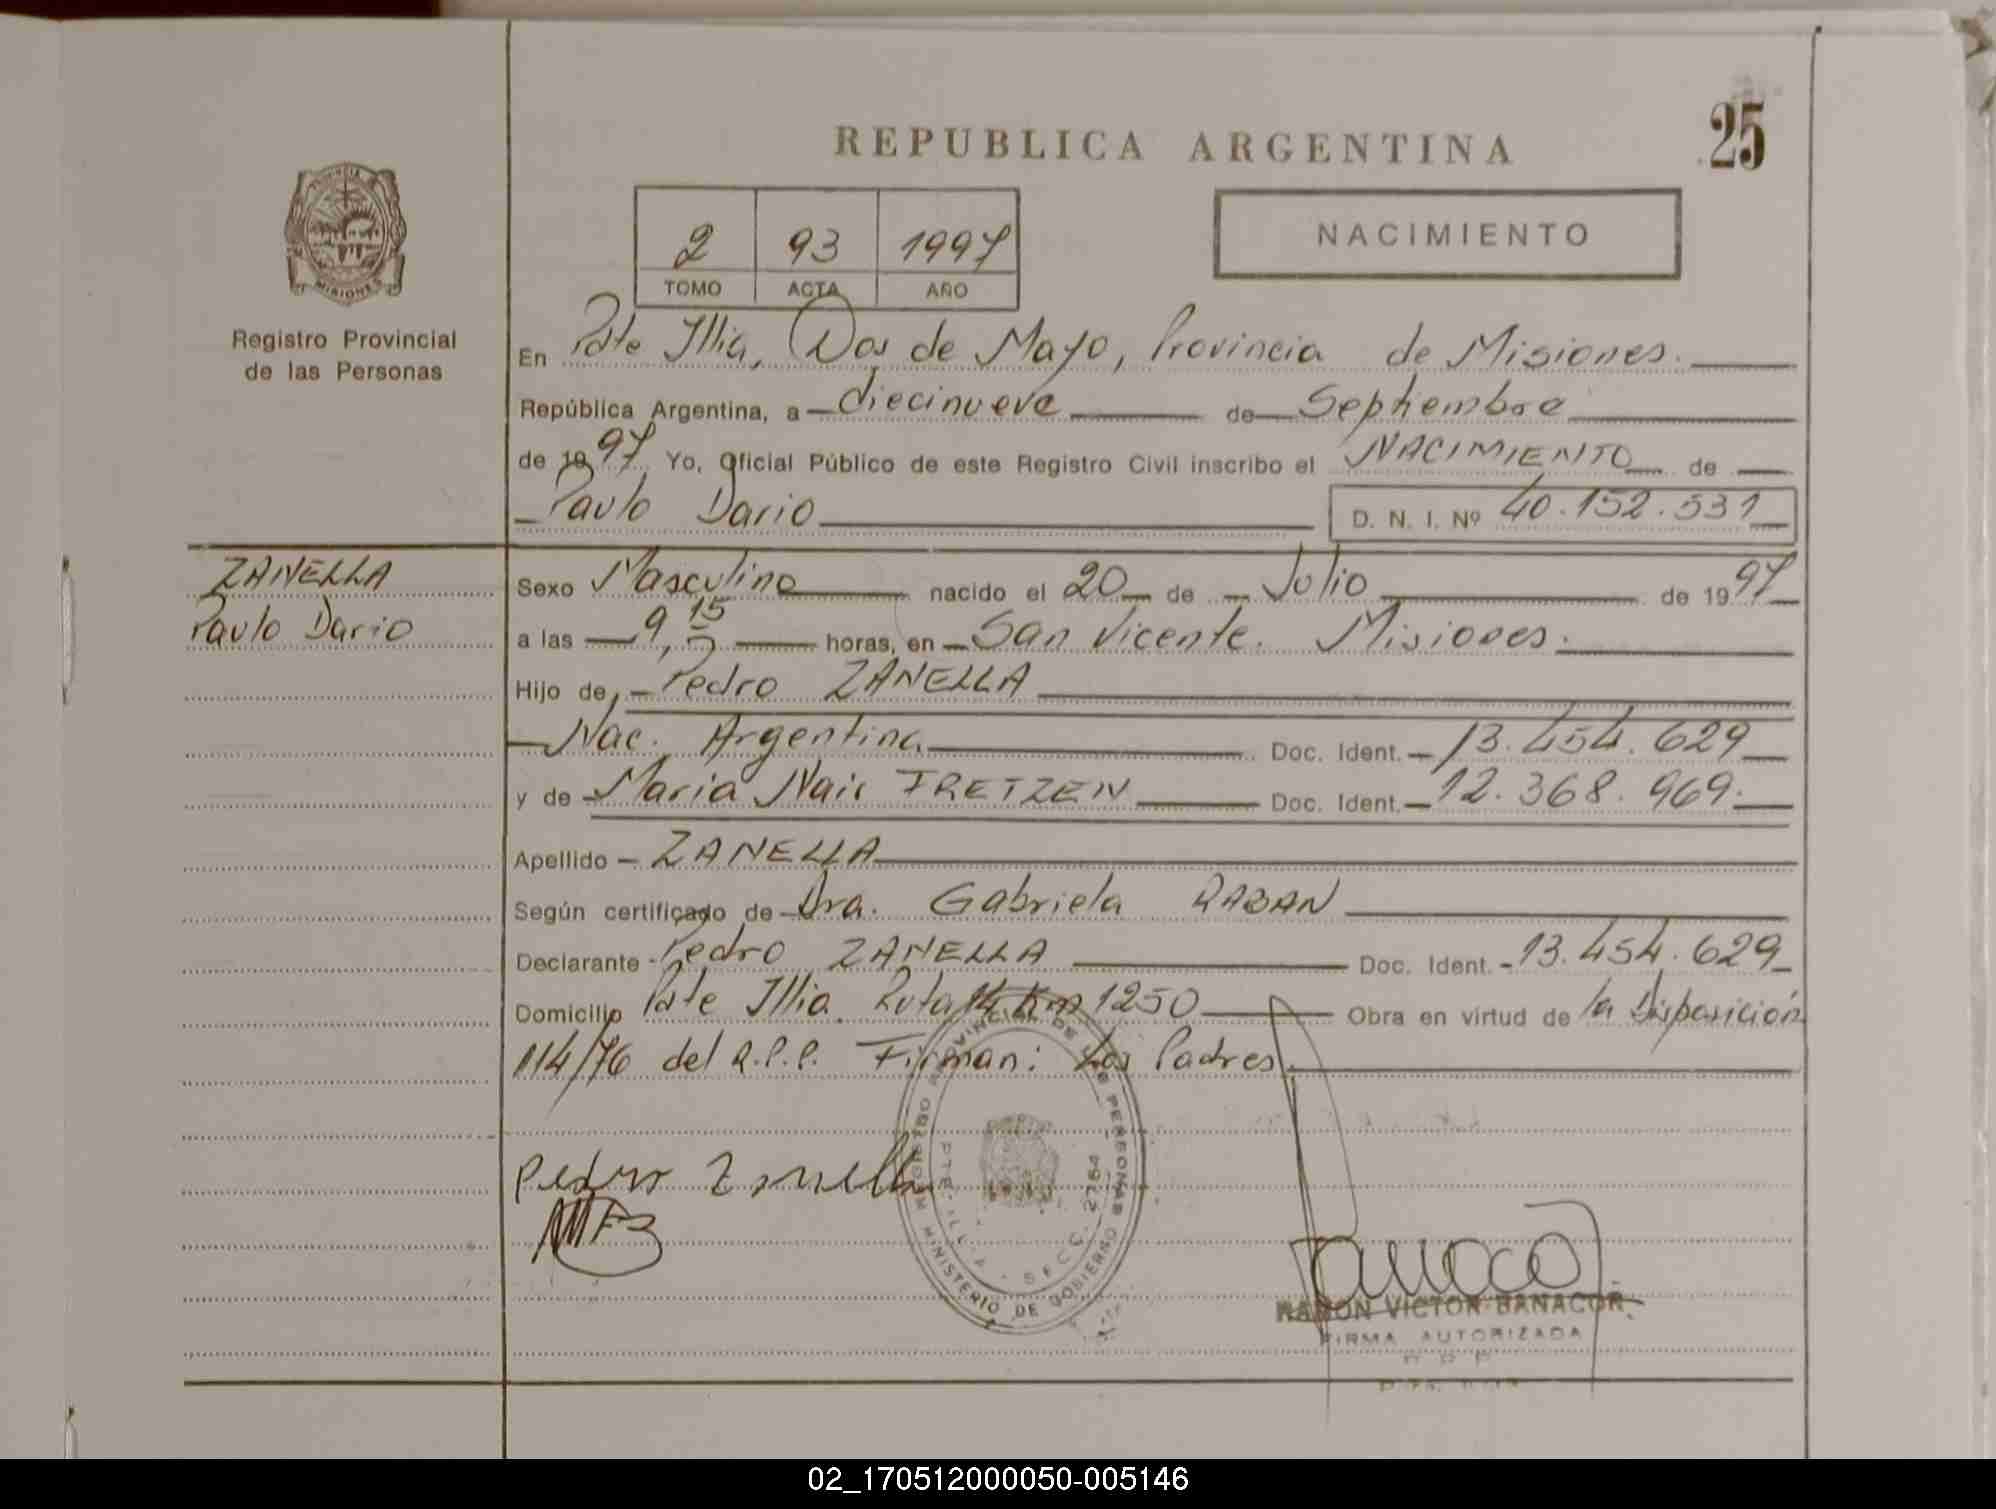 REPUBLICA ARGENTINA
25
PROVINCIA DE
MISIONES
Registro Provincial
de las Personas
2 93 1997
TOMO ACTA AÑO
NACIMIENTO
En Pdte Illia, Dos de Mayo, Provincia de Misiones.
República Argentina, a diecinueve de Septiembre
de 1997 Yo, Oficial Público de este Registro Civil inscribo el NACIMIENTO de
Paulo Dario D. N. I. Nº 40.152.531
ZANELLA
Paulo Dario
Sexo Masculino nacido el 20 de Julio de 1997
a las 9,15 horas, en San Vicente. Misiones.
Hijo de, Pedro ZANELLA
Nac. Argentina Doc. Ident. 13.454.629
y de Maria Nair FRETZEN Doc. Ident. 12.368.969.
Apellido ZANELLA
Según certificado de Dra. Gabriela RABAN
Declarante Pedro ZANELLA Doc. Ident. 13.454.629
Domicilio Pdte Illia Ruta 14 Km 1250 Obra en virtud de la Disposición
114/76 del R.P.P. Firman: Los Padres
Pedro Zanella
REGISTRO PROVINCIAL DE LAS PERSONAS
MINISTERIO DE GOBIERNO
PTE. ILLIA - SECC. 2764
RAMON VICTOR BANACOR
FIRMA AUTORIZADA
R P P
02_170512000050-005146